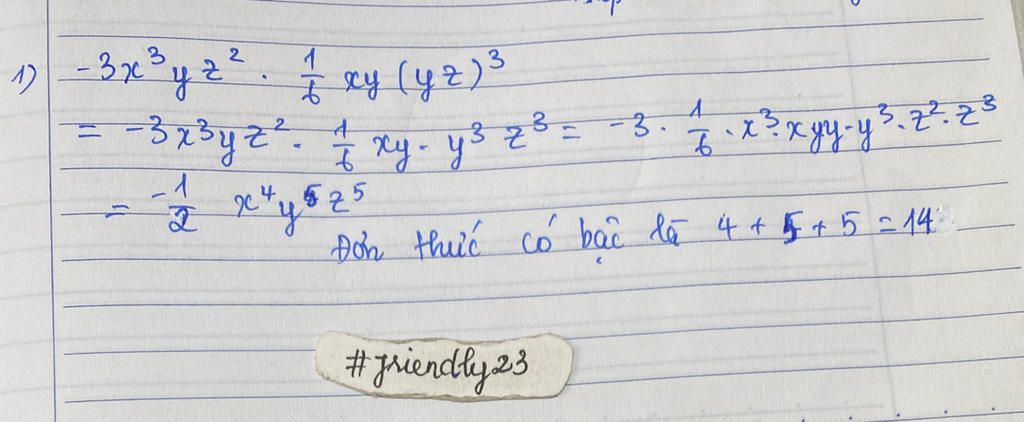 1) -3x³yz² . 1/6 xy (yz)³
= -3x³yz² . 1/6 xy . y³ z³ = -3 . 1/6 . x³ . xyy . y³ . z² . z³
= -1/2 x⁴y⁵z⁵
Đơn thức có bậc là 4 + 5 + 5 = 14
#friendly23